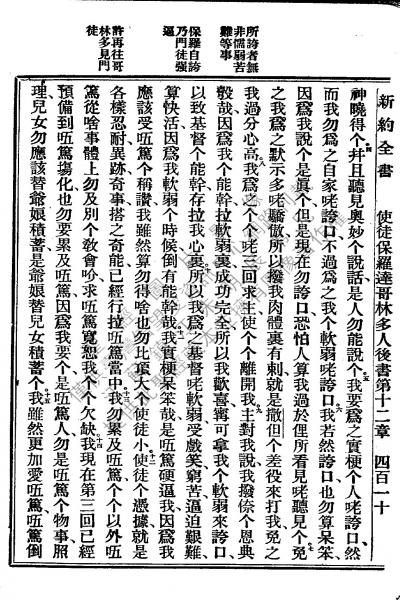 所誇者無
非懦弱苦
難等事
保羅自誇
乃門徒强
逼
許再往哥
林多見門
徒
新約全書　使徒保羅達哥林多人後書第十二章　四百一十
神曉得个、四并且聽見奧妙个說話、是人勿能說个、五我要爲之實梗个人咾誇口、然
而我勿爲之自家咾誇口、不過爲之我个軟弱咾誇口、六我若然誇口、也勿算呆笨、
因爲我說个是眞个、但是現在勿誇口、恐怕人算我過於俚所看見咾聽見个、七免
之我爲之默示多咾驕傲、所以撥我肉體裏有刺、就是撒但个差役來打我、免之
我過分心高、八我爲之个个咾三回求主、使个个離開我、九主對我說、我撥倷个恩典
彀哉、因爲我个能幹拉軟弱裏成功完全、所以我歡喜寗可拿我个軟弱來誇口、
以致基督个能幹存拉我心裏、十所以我爲之基督咾軟弱、受戲笑、窮苦、逼迫、艱難、
算快活、因爲我軟弱个時候倒有能幹哉、十一我實梗呆笨哉、是㕶篤硬逼我、因爲我
應該受㕶篤个稱讚、我雖然算勿得啥、也勿比頂大个使徒小、十二使徒个憑據、就是
各樣忍耐、異跡奇事搭之奇能、已經行拉㕶篤當中、十三我勿累及㕶篤个个以外、㕶
篤從啥事體上勿及別个敎會吤、求㕶篤寬恕我个个欠缺、十四我現在第三回已經
預備到㕶篤塲化、也勿要累及㕶篤、因爲我要个是㕶篤人、勿是㕶篤个物事、照
理兒女勿應該替爺娘積蓄、是爺娘替兒女積蓄个、十五我雖然更加愛㕶篤、㕶篤倒